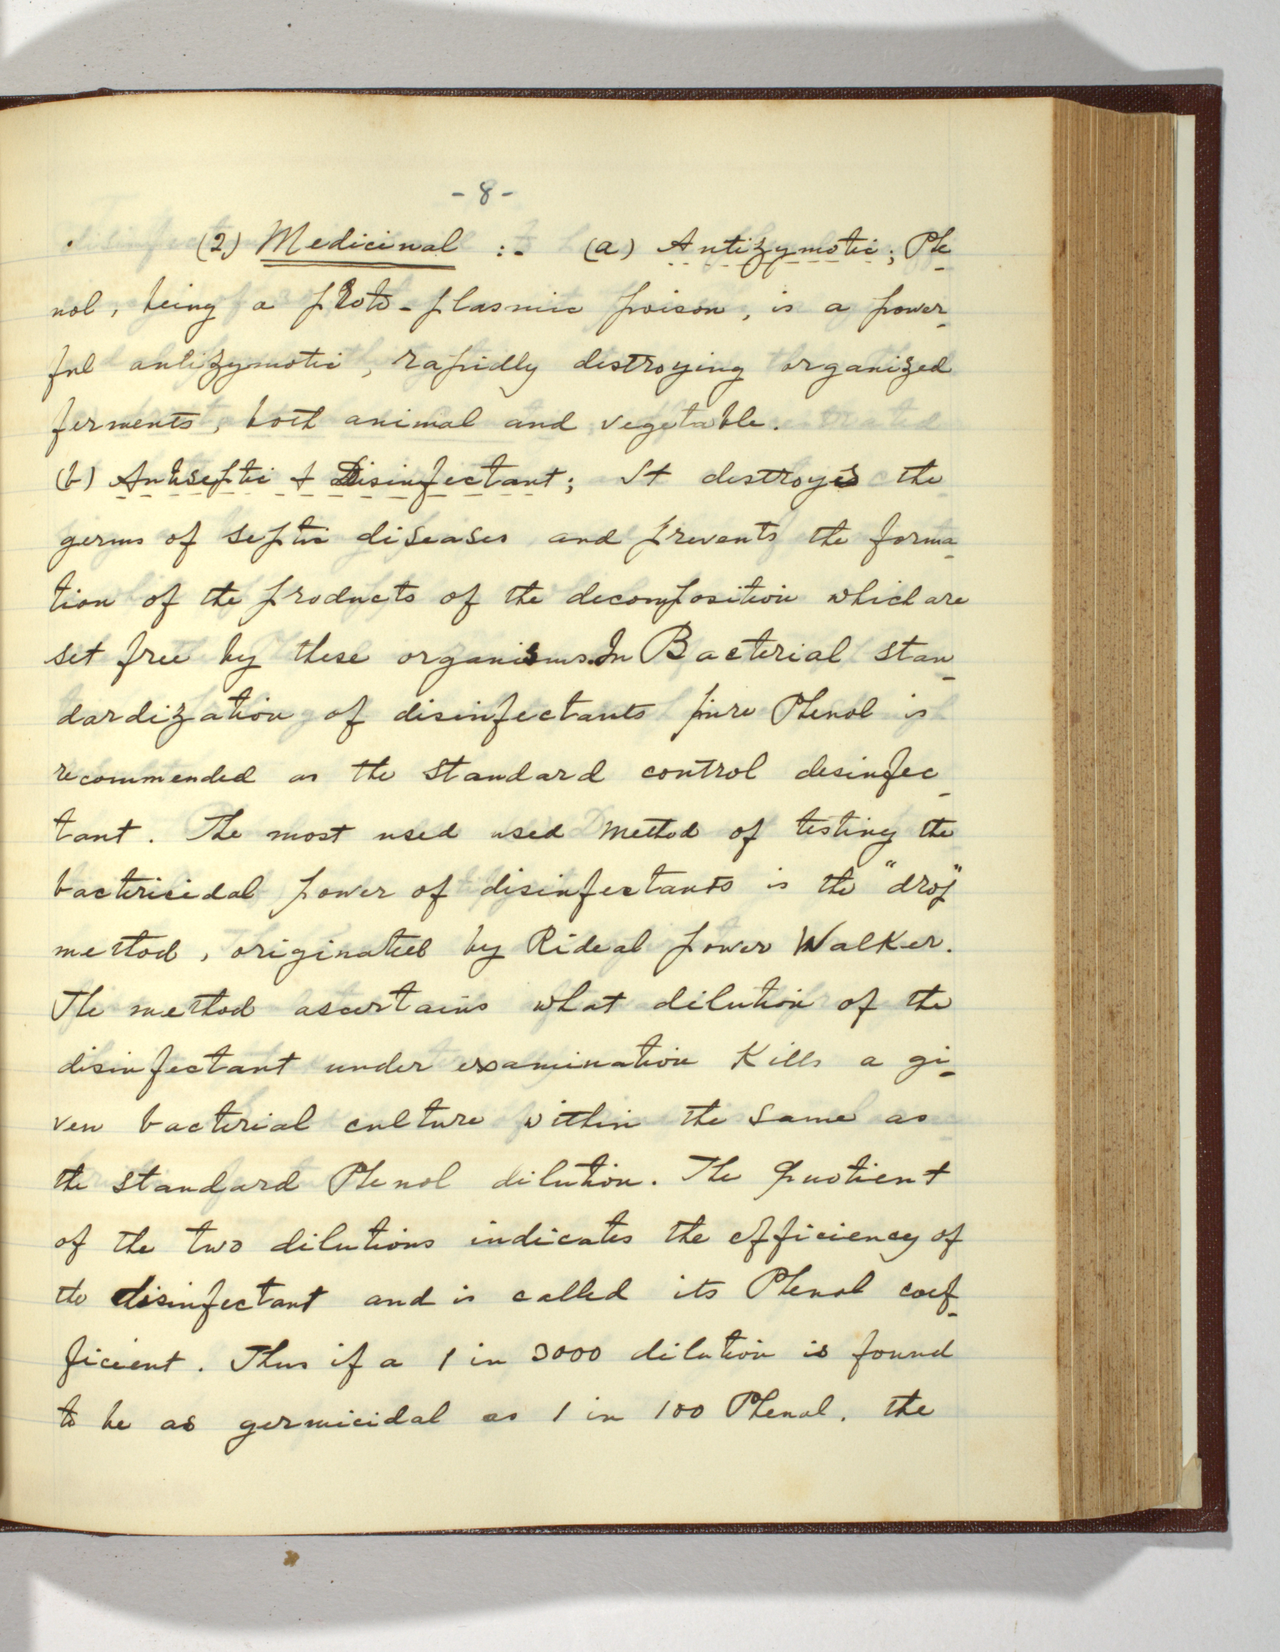 -8-
(2) Medicinal :- (a) Antizymotic; Phe-
nol, being a proto-plasmic poison, is a power-
ful antizymotic, rapidly destroying organized
ferments, both animal and vegetable.
(b) Antiseptic & Disinfectant; It destroyes the
germs of septic diseases and prevents the forma-
tion of the products of the decomposition which are
set free by these organisms. In Bacterial stan-
dardization of disinfectants pure Phenol is
recommended as the standard control desinfec-
tant. The most used used method of testing the
bactericidal power of disinfectants is the "drop"
method, originated by Rideal power Walker.
The method ascertains what dilution of the
disinfectant under examination kills a gi-
ven bacterial culture within the same as
the standard Phenol dilution. The quotient
of the two dilutions indicates the efficiency of
the disinfectant and is called its Phenol coef-
ficient. Thus if a 1 in 3000 dilution is found
to be as germicidal as 1 in 100 Phenol, the